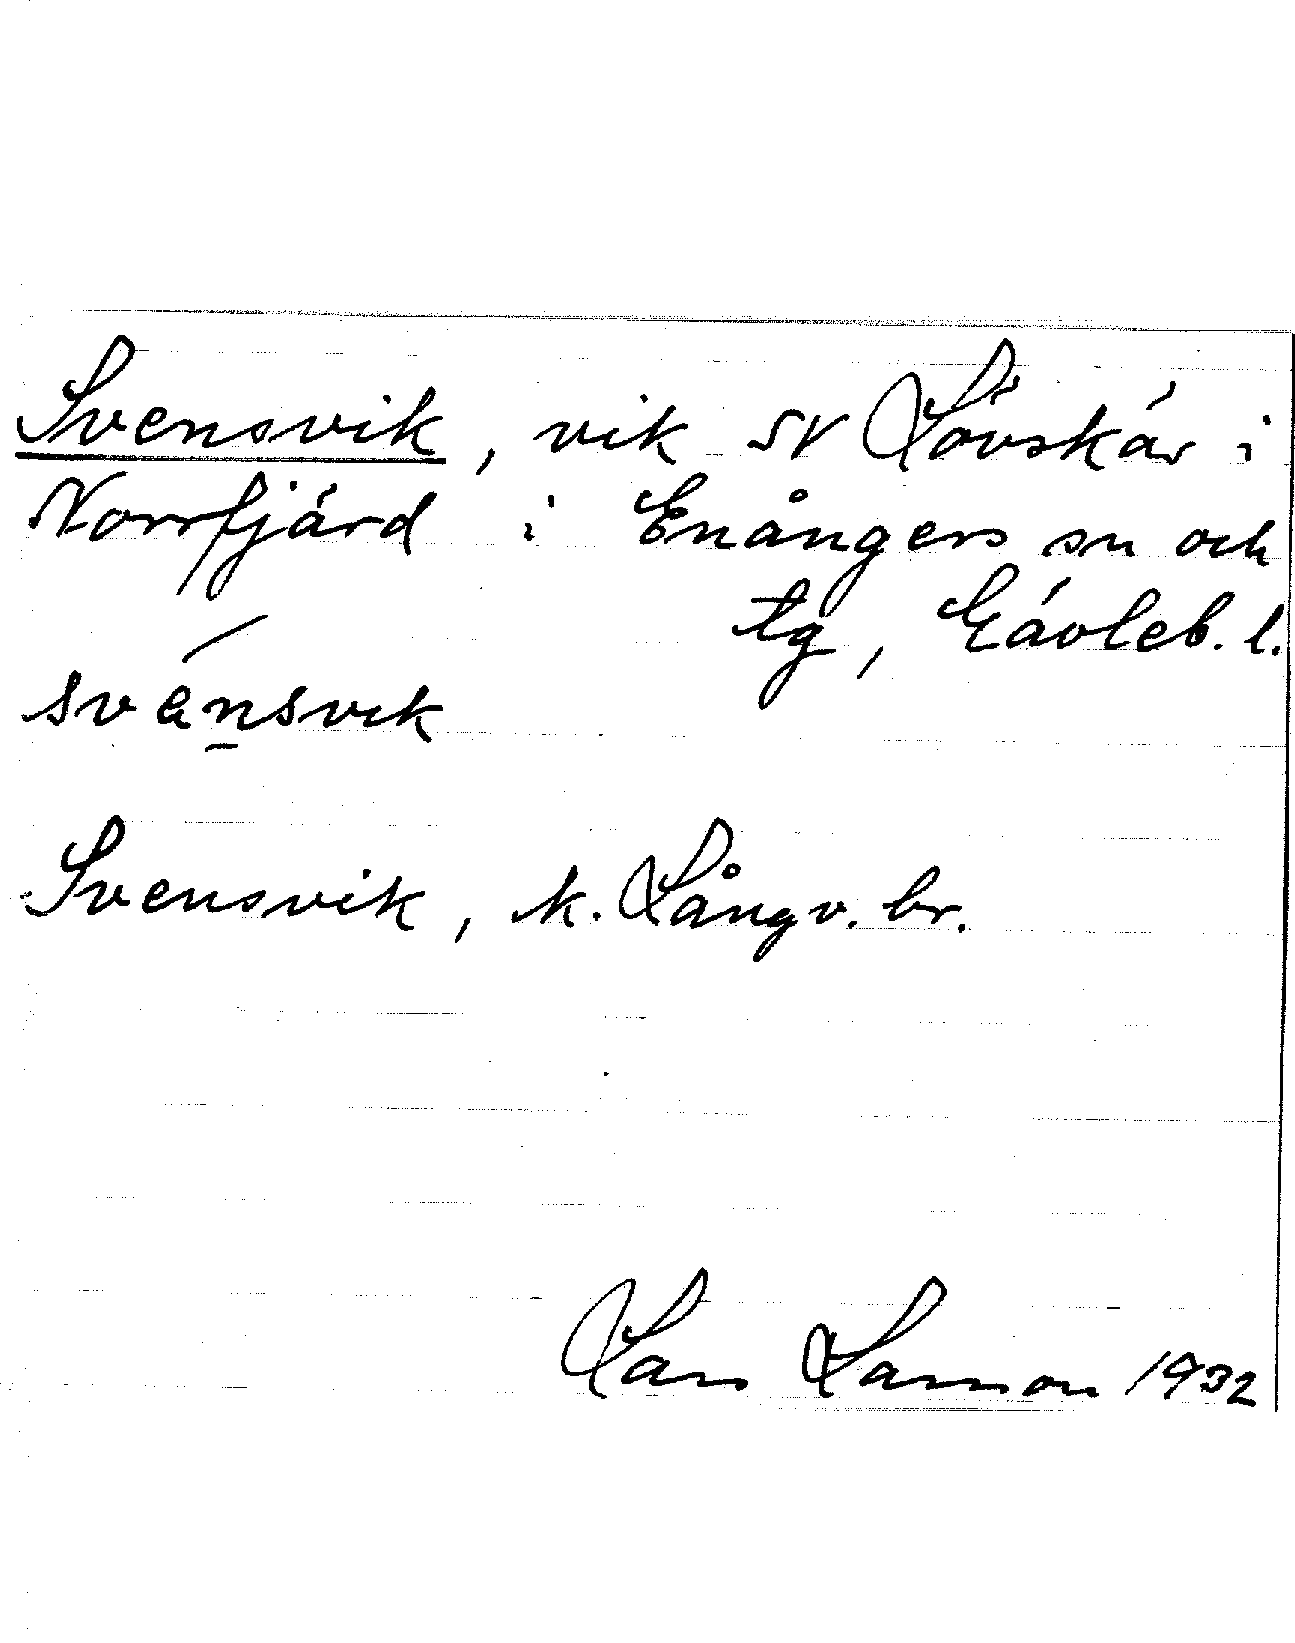 Svensvik, vik SV Lövskär i
Norrfjärd i Enångers sn och
tg, Gävleb. l.
svénsvik
Svensvik, k. Långv. br.
Lars Larsson 1932